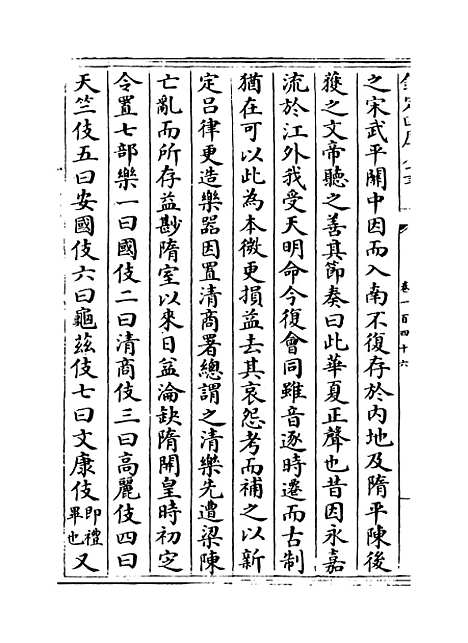 欽定四庫全書
卷一百四十六
之宋武平關中因而入南不復存於内地及隋平陳後
獲之文帝聽之善其節奏曰此華夏正聲也昔因永嘉
流於江外我受天明命今復會同雖音逐時遷而古制
猶在可以此為本微更損益去其哀怨考而補之以新
定吕律更造樂器因置清商署總謂之清樂先遭梁陳
亡亂而所存益尠隋室以來日益淪缺隋開皇時初定
令置七部樂一曰國伎二曰清商伎三曰高麗伎四曰
天竺伎五曰安國伎六曰龜兹伎七曰文康伎即禮畢也又